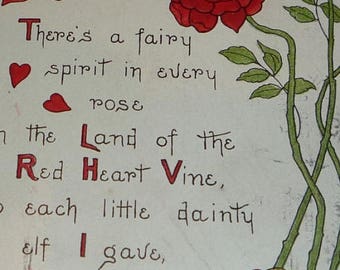 There's a fairy
spirit in every
rose
the Land of the
Red Heart Vine,
each little dainty
elf I gave,